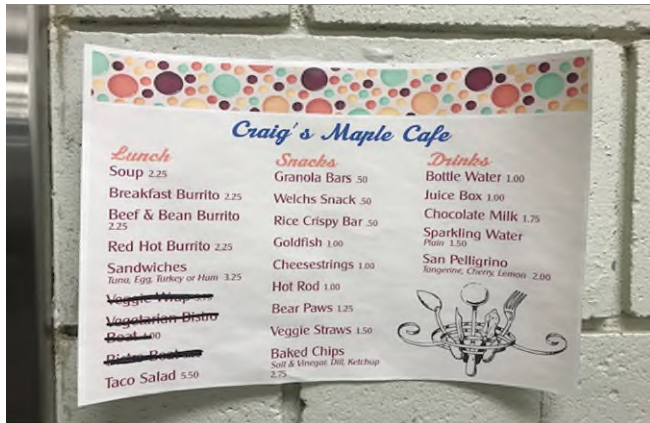 Craig's Maple Cafe
Lunch
Soup 2.25
Breakfast Burrito 2.25
Beef & Bean Burrito
2.25
Red Hot Burrito 2.25
Sandwiches
Tuna, Egg, Turkey or Ham 3.25
Veggie Wrap
Vegetarian Bistro
Boat 4.00
Bistro Boat
Taco Salad 5.50
Snacks
Granola Bars .50
Welchs Snack .50
Rice Crispy Bar .50
Goldfish 1.00
Cheesestrings 1.00
Hot Rod 1.00
Bear Paws 1.25
Veggie Straws 1.50
Baked Chips
Salt & Vinegar, Dill, Ketchup
2.75
Drinks
Bottle Water 1.00
Juice Box 1.00
Chocolate Milk 1.75
Sparkling Water
Plain 1.50
San Pelligrino
Tangerine, Cherry, Lemon 2.00